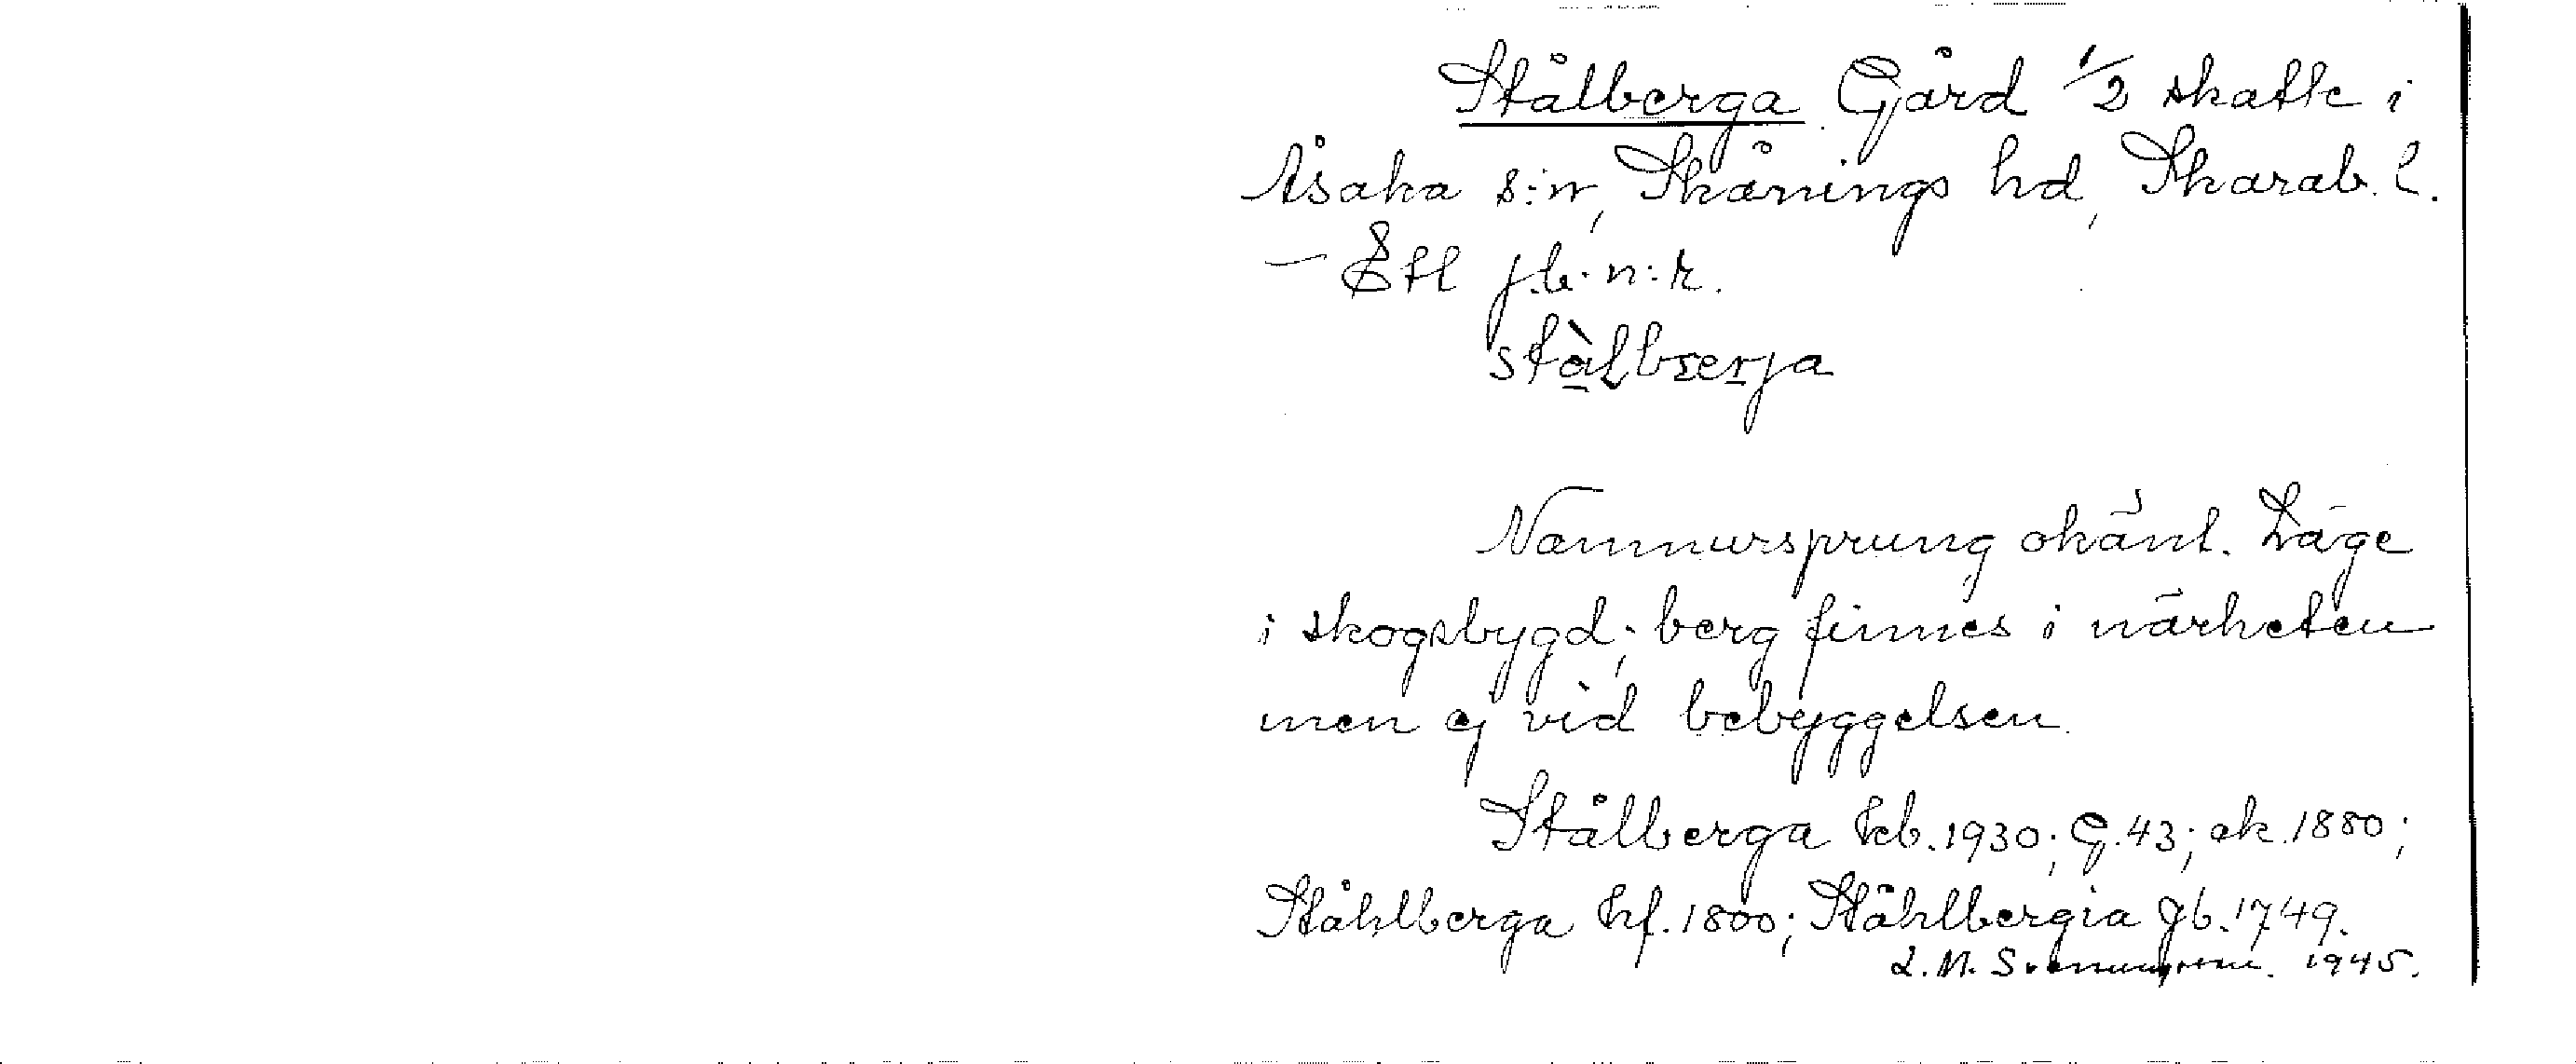 Stålberga Gård 1/2 skatte i
Åsaka s:n, Skånings hd, Skarab. l.
— Ett j.b. n:r.
Namnursprung okänt. Läge
i skogsbygd; berg finnes i närheten
men ej vid bebyggelsen.
Stålberga kb. 1930; G. 43; ek. 1880;
Ståhlberga hf. 1800; Ståhlbergia jb. 1749.
L. M. 1945.